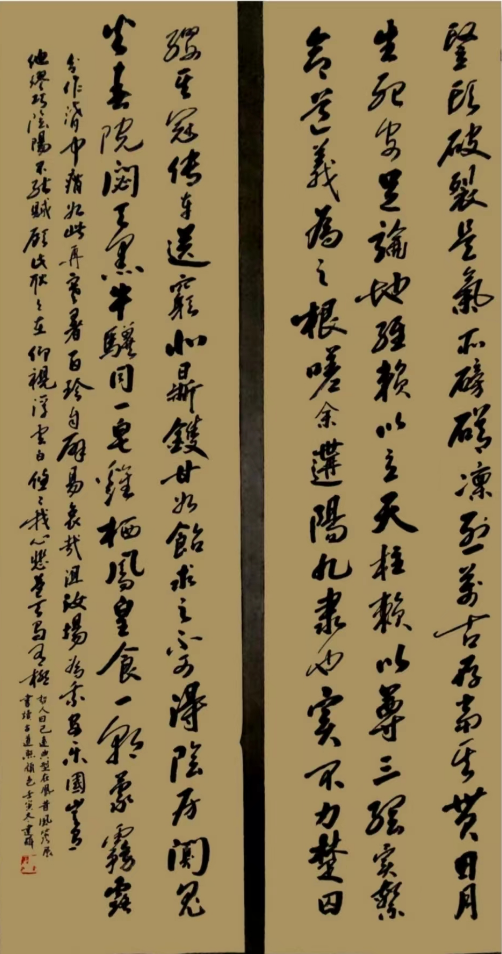 豎頭破裂是氣所磅礴凛烈萬古存當其貫日月
生死安足論地維賴以立天柱賴以尊三綱實繫
命道義為之根嗟余遘陽九隸也實不力楚囚
纓其冠传車送窮北鼎鑊甘如飴求之不可得陰房闃鬼
火春院閟天黑牛驥同一皂雞栖鳳皇食一朝蒙霧露
分作溝中瘠如此再寒暑百珍自辟易哀哉沮洳場為我安樂國豈有
他繆巧陰陽不能賊顧此耿々在仰視浮雲白悠々我心悲蒼天曷有極
哲人日已遠典型在夙昔風簷展
書讀古道照顏色壬寅冬